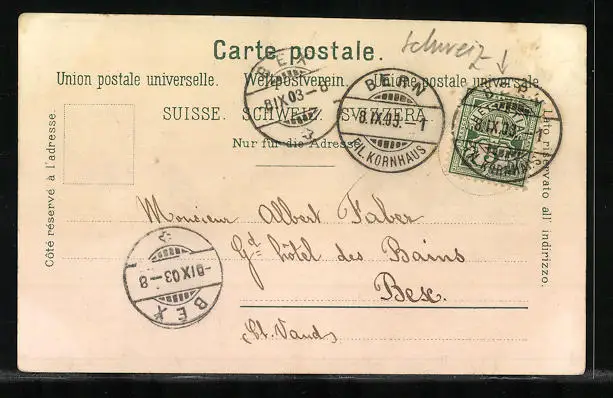 Carte postale.
Schweiz
Union postale universelle. Weltpostverein. Unione postale universale
SUISSE. SCHWEIZ. SVIZZERA.
Nur für die Adresse
Côté réservé à l'adresse.
Lato riservato all' indirizzo.
BEX
8 IX 03 – 8
BERN
8. IX. 03. – 1
FIL. KORNHAUS
BERN
8. IX. 03. – 1
FIL. KORNHAUS
Monsieur Albert Faber
Gd hôtel des Bains
Bex.
(Ct. Vaud)
BEX
8 IX 03 – 8